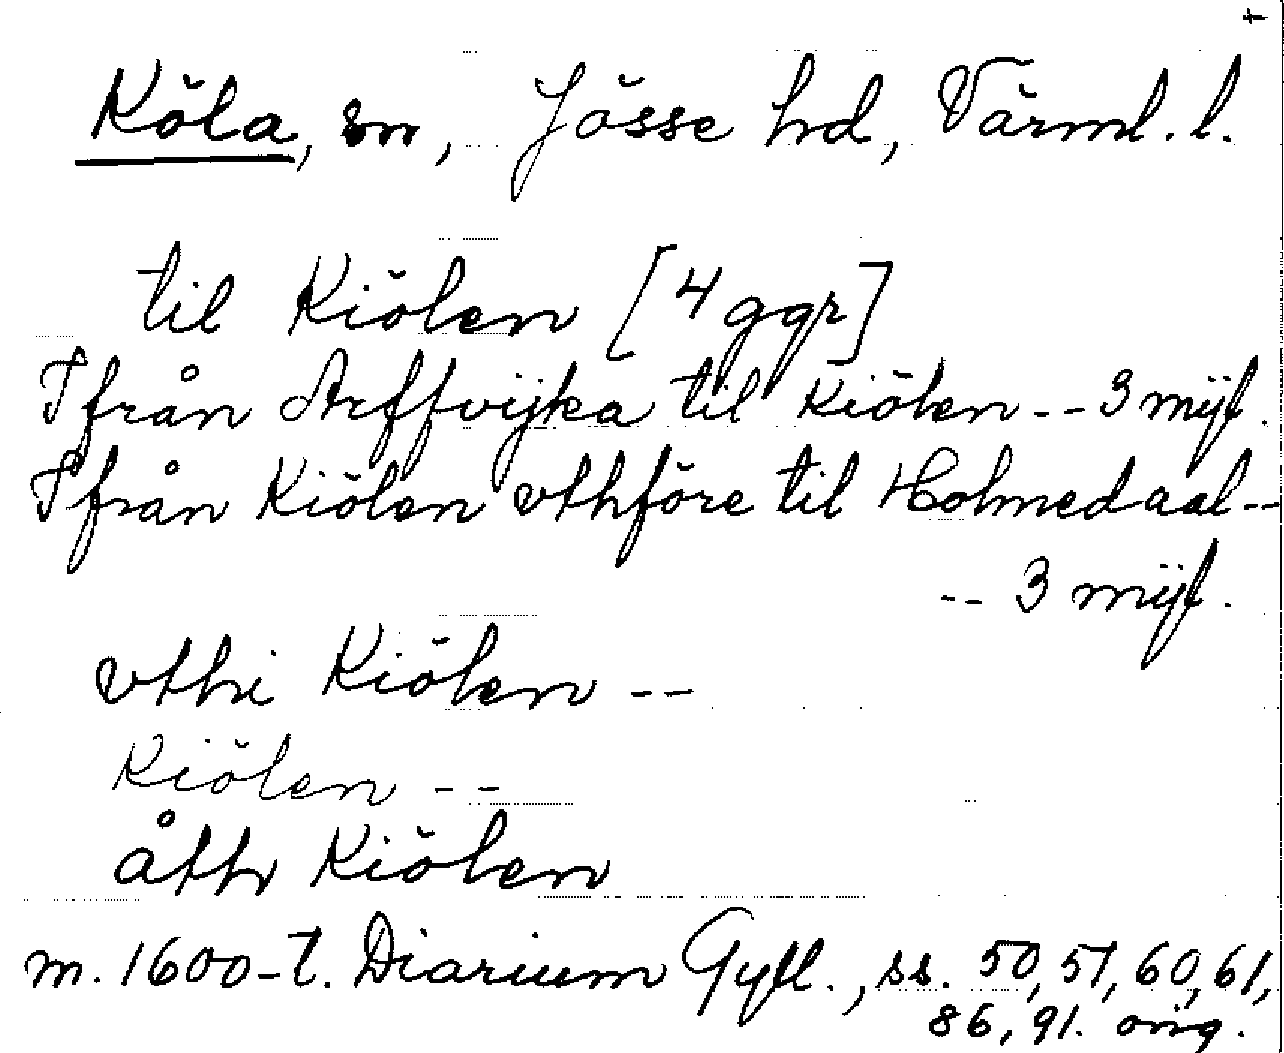 +
Köla, sn, Jösse hd, Värml. l.
til Kiölen [4 ggr]
Ifrån Arffvijka til Kiölen -- 3 mijl.
Ifrån Kiölen vthföre til Holmedaal --
-- 3 mijl.
vthi Kiölen --
Kiölen --
åth Kiölen
m. 1600-t. Diarium Gyll., ss. 50, 51, 60, 61,
86, 91. orig.